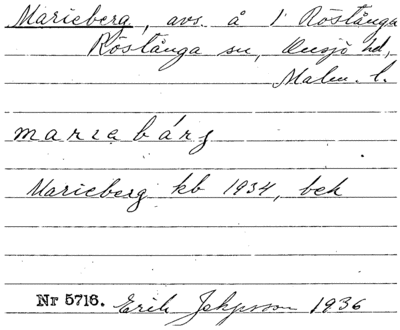 Marieberg, avs. å 1 Röstånga
Röstånga sn, Onsjö hd,
Malm. l.
mariabärj
Marieberg kb 1934, bek
Nr 5716. Erik Jeppsson 1936